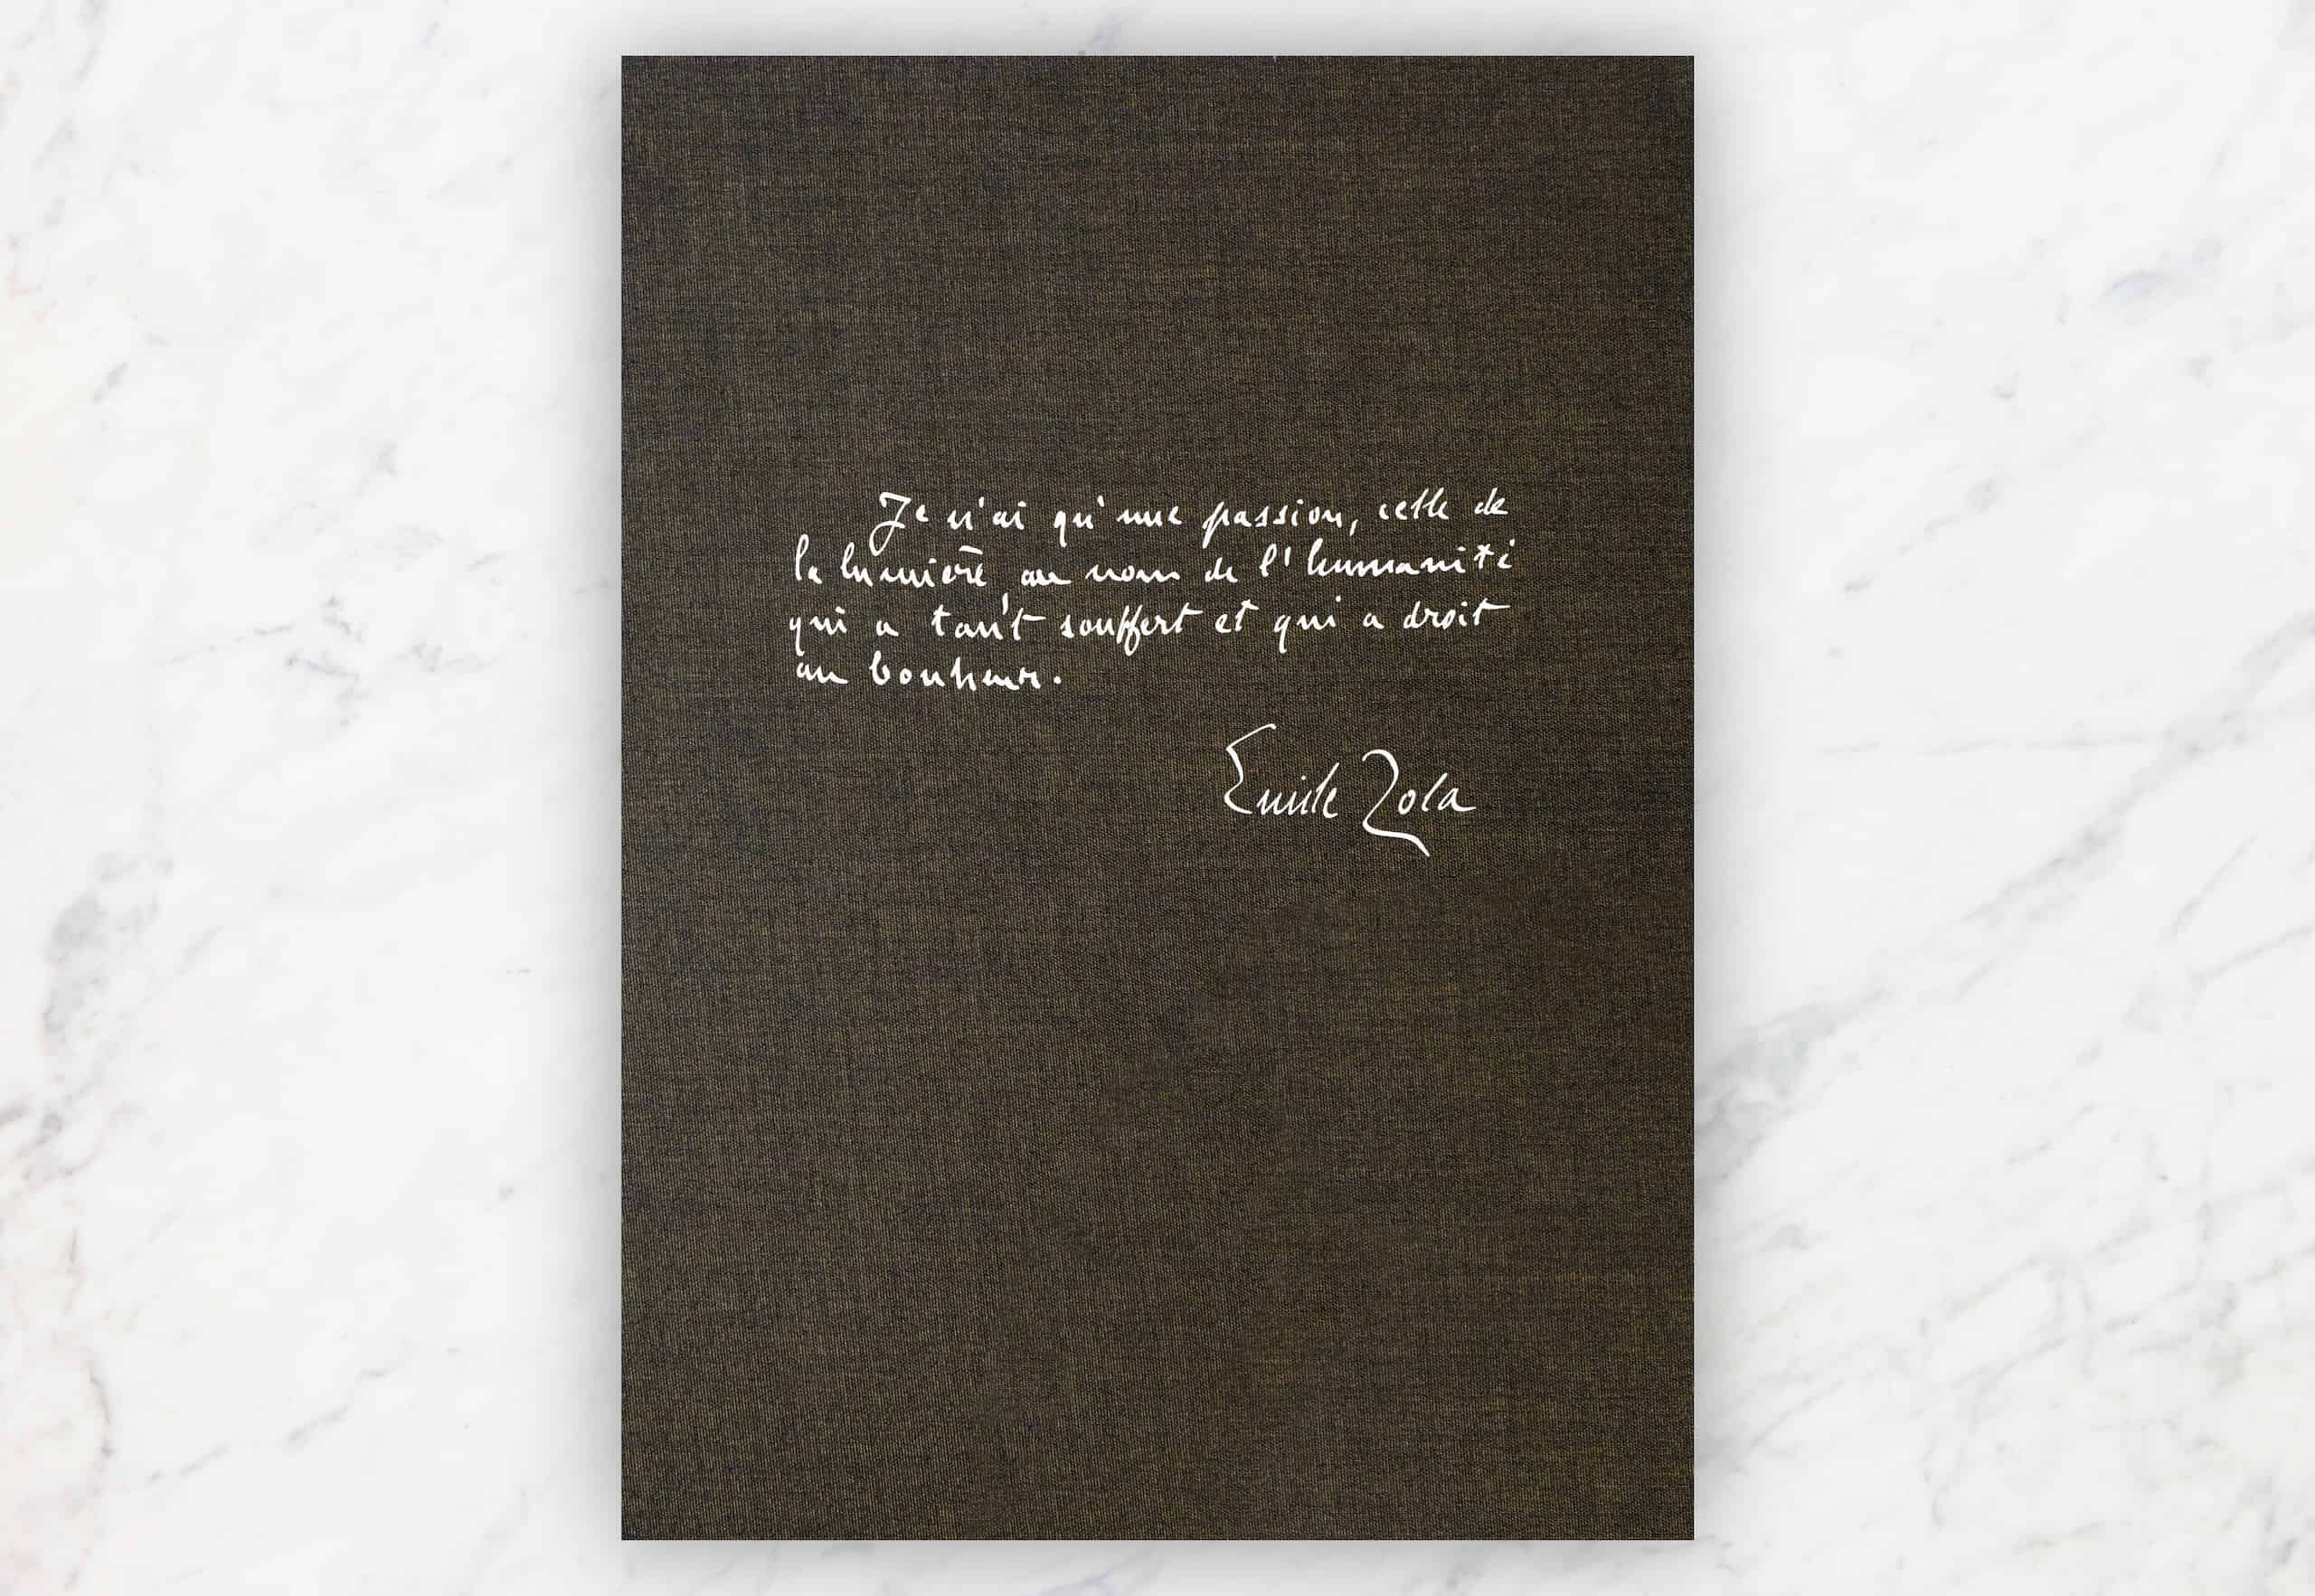 Je n'ai qu'une passion, celle de
la lumière, au nom de l'humanité
qui a tant souffert et qui a droit
au bonheur.
Emile Zola